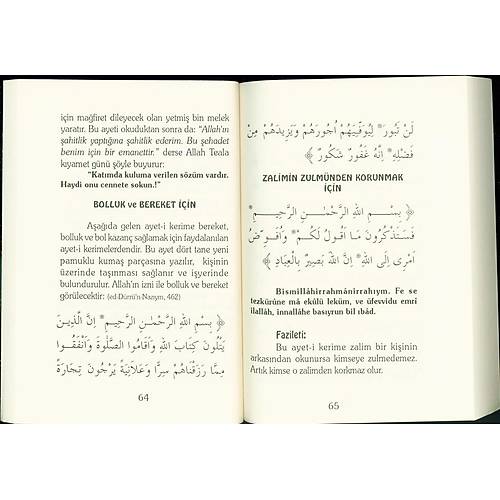 için mağfiret dileyecek olan yetmiş bin melek
yaratır. Bu ayeti okuduktan sonra da: “Allah'ın
şahitlik yaptığına şahitlik ederim. Bu şehadet
benim için bir emanettir.” derse Allah Teala
kıyamet günü şöyle buyurur:
“Katımda kuluma verilen sözüm vardır.
Haydi onu cennete sokun.!”
BOLLUK ve BEREKET İÇİN
Aşağıda gelen ayet-i kerime bereket,
bolluk ve bol kazanç sağlamak için faydalanılan
ayet-i kerimelerdendir. Bu ayet dört tane yeni
pamuklu kumaş parçasına yazılır, kişinin
üzerinde taşınması sağlanır ve işyerinde
bulundurulur. Allah'ın izni ile bolluk ve bereket
görülecektir: (ed-Dürrü'n-Nazım, 462)
﴿ بِسْمِ اللهِ الرَّحْمٰنِ الرَّحِيمِ* اِنَّ الَّذِينَ
يَتْلُونَ كِتَابَ اللهِ وَاَقَامُوا الصَّلٰوةَ وَاَنْفَقُوا
مِمَّا رَزَقْنَاهُمْ سِرًّا وَعَلَانِيَةً يَرْجُونَ تِجَارَةً
64
لَنْ تَبُورَ* لِيُوَفِّيَهُمْ اُجُورَهُمْ وَيَزِيدَهُمْ مِنْ
فَضْلِهِ* اِنَّهُ غَفُورٌ شَكُورٌ ﴾
ZALİMİN ZULMÜNDEN KORUNMAK
İÇİN
﴿ بِسْمِ اللهِ الرَّحْمٰنِ الرَّحِيمِ*
فَسَتَذْكُرُونَ مَا اَقُولُ لَكُمْ* وَاُفَوِّضُ
اَمْرِى اِلَى اللهِ* اِنَّ اللهَ بَصِيرٌ بِالْعِبَادِ ﴾
Bismillâhirrahmânirrahıym. Fe se
tezkürûne mâ ekûlü leküm, ve üfevvidu emrî
ilallâh, innallâhe basıyrun bil ıbâd.
Fazileti:
Bu ayet-i kerime zalim bir kişinin
arkasından okunursa kimseye zulmedemez.
Artık kimse o zalimden korkmaz olur.
65